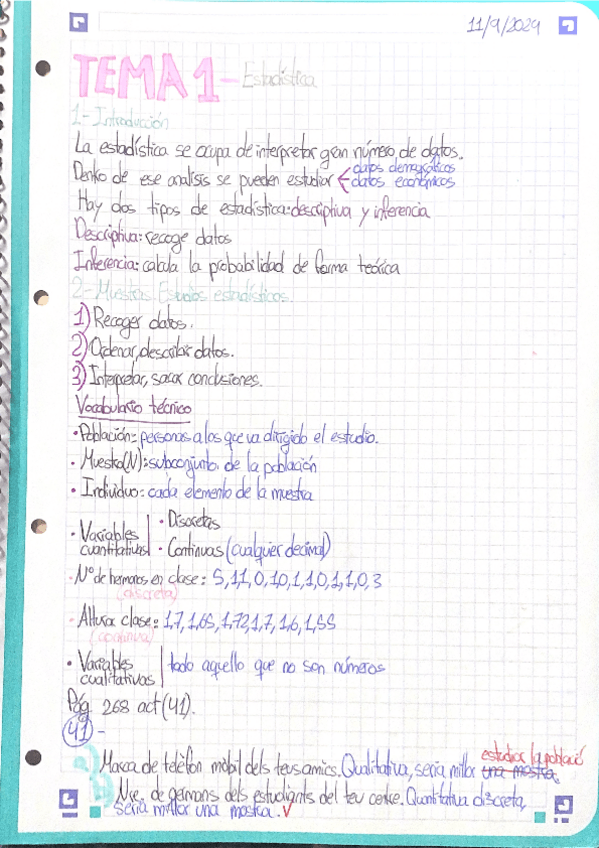 11/9/2024
TEMA 1 - Estadística
1- Introducción
La estadística se ocupa de interpretar gran número de datos.
Dentro de ese analisis se pueden estudiar datos demográficos
datos económicos
Hay dos tipos de estadística: descriptiva y inferencia
Descriptiva: recoge datos
Inferencia: calcula la probabilidad de forma teórica
2- Muestras Estudios estadísticos.
1) Recoger datos.
2) Ordenar, describir datos.
3) Interpretar, sacar conclusiones.
Vocabulario técnico
• Población: personas a los que va dirigido el estudio.
• Muestra(N): subconjunto de la población
• Individuo: cada elemento de la muestra
• Variables cuantitativas
• Discretas
• Continuas (cualquier decimal)
• Nº de hermanos en clase: 5, 1, 1, 0, 1, 0, 1, 1, 0, 1, 1, 0, 3
(discreta)
• Altura clase: 1,7, 1,65, 1,72, 1,7, 1,6, 1,55
(continua)
• Variables cualitativas
todo aquello que no son números
Pág 268 act(41).
41-
a) Marca de telèfon mobil dels teus amics. Qualitativa, seria millor una mostra. estudiar la població
b) Nre. de germans dels estudiants del teu centre. Quantitativa discreta,
seria millor una mostra. V